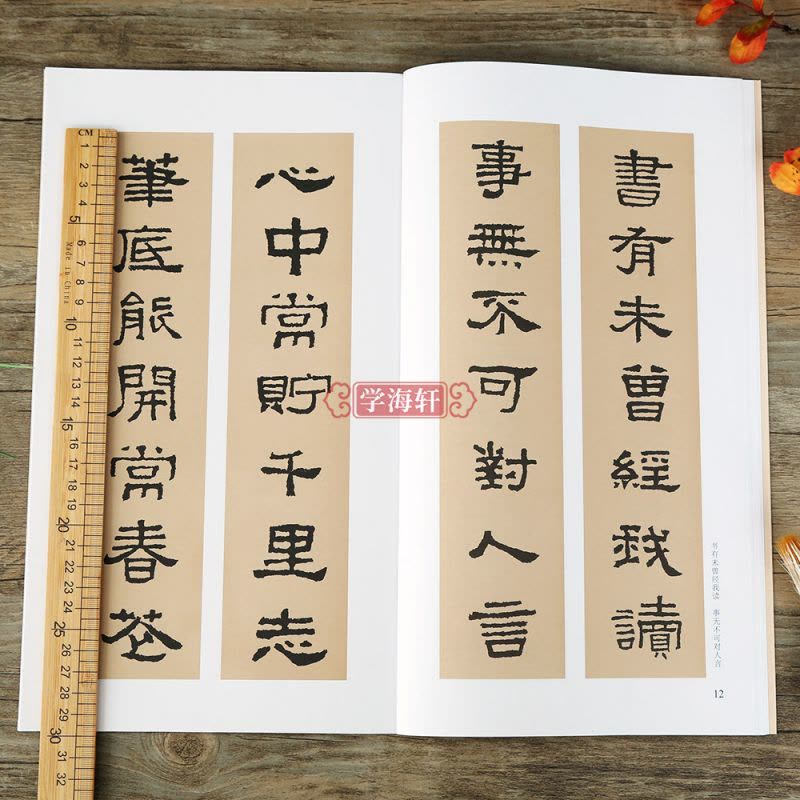 書有未曾經我讀
事無不可對人言
心中常貯千里志
筆底能開常春花
书有未曾经我读 事无不可对人言
12
学海轩
CM
1
2
3
4
5
6
7
8
9
10
11
12
13
14
15
16
17
18
19
20
21
22
23
24
25
26
27
28
29
30
31
32
Made in China